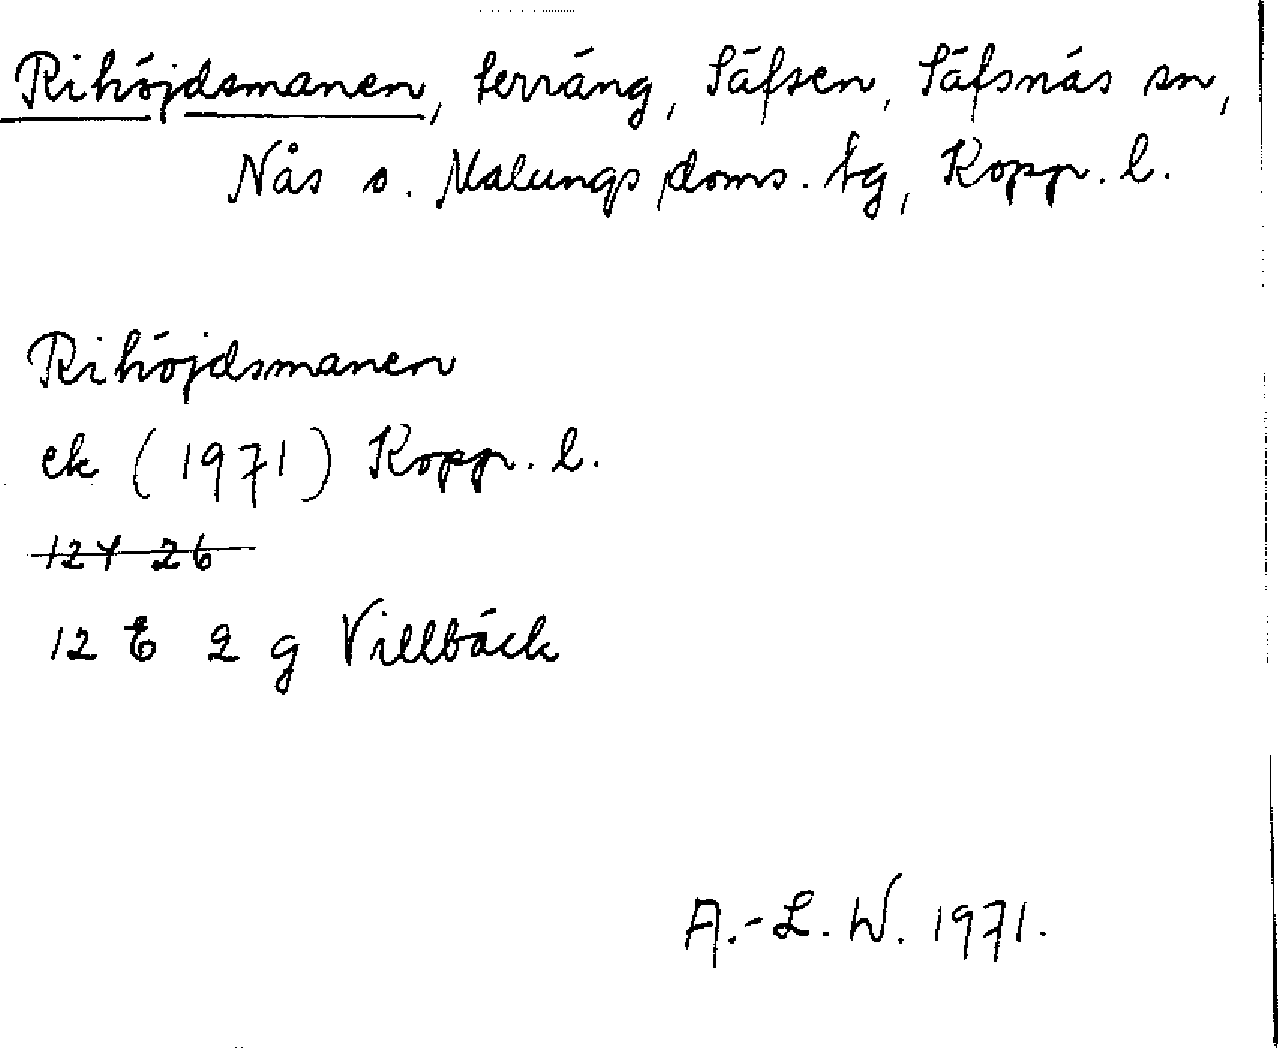 Rihöjdsmanen, terräng, Säfsen, Säfsnäs sn,
Nås o. Malungs doms. tg, Kopp. l.
Rihöjdsmanen
ek (1971) Kopp. l.
12Y 26
12 E 2 g Villbäck
A.-L. W. 1971.